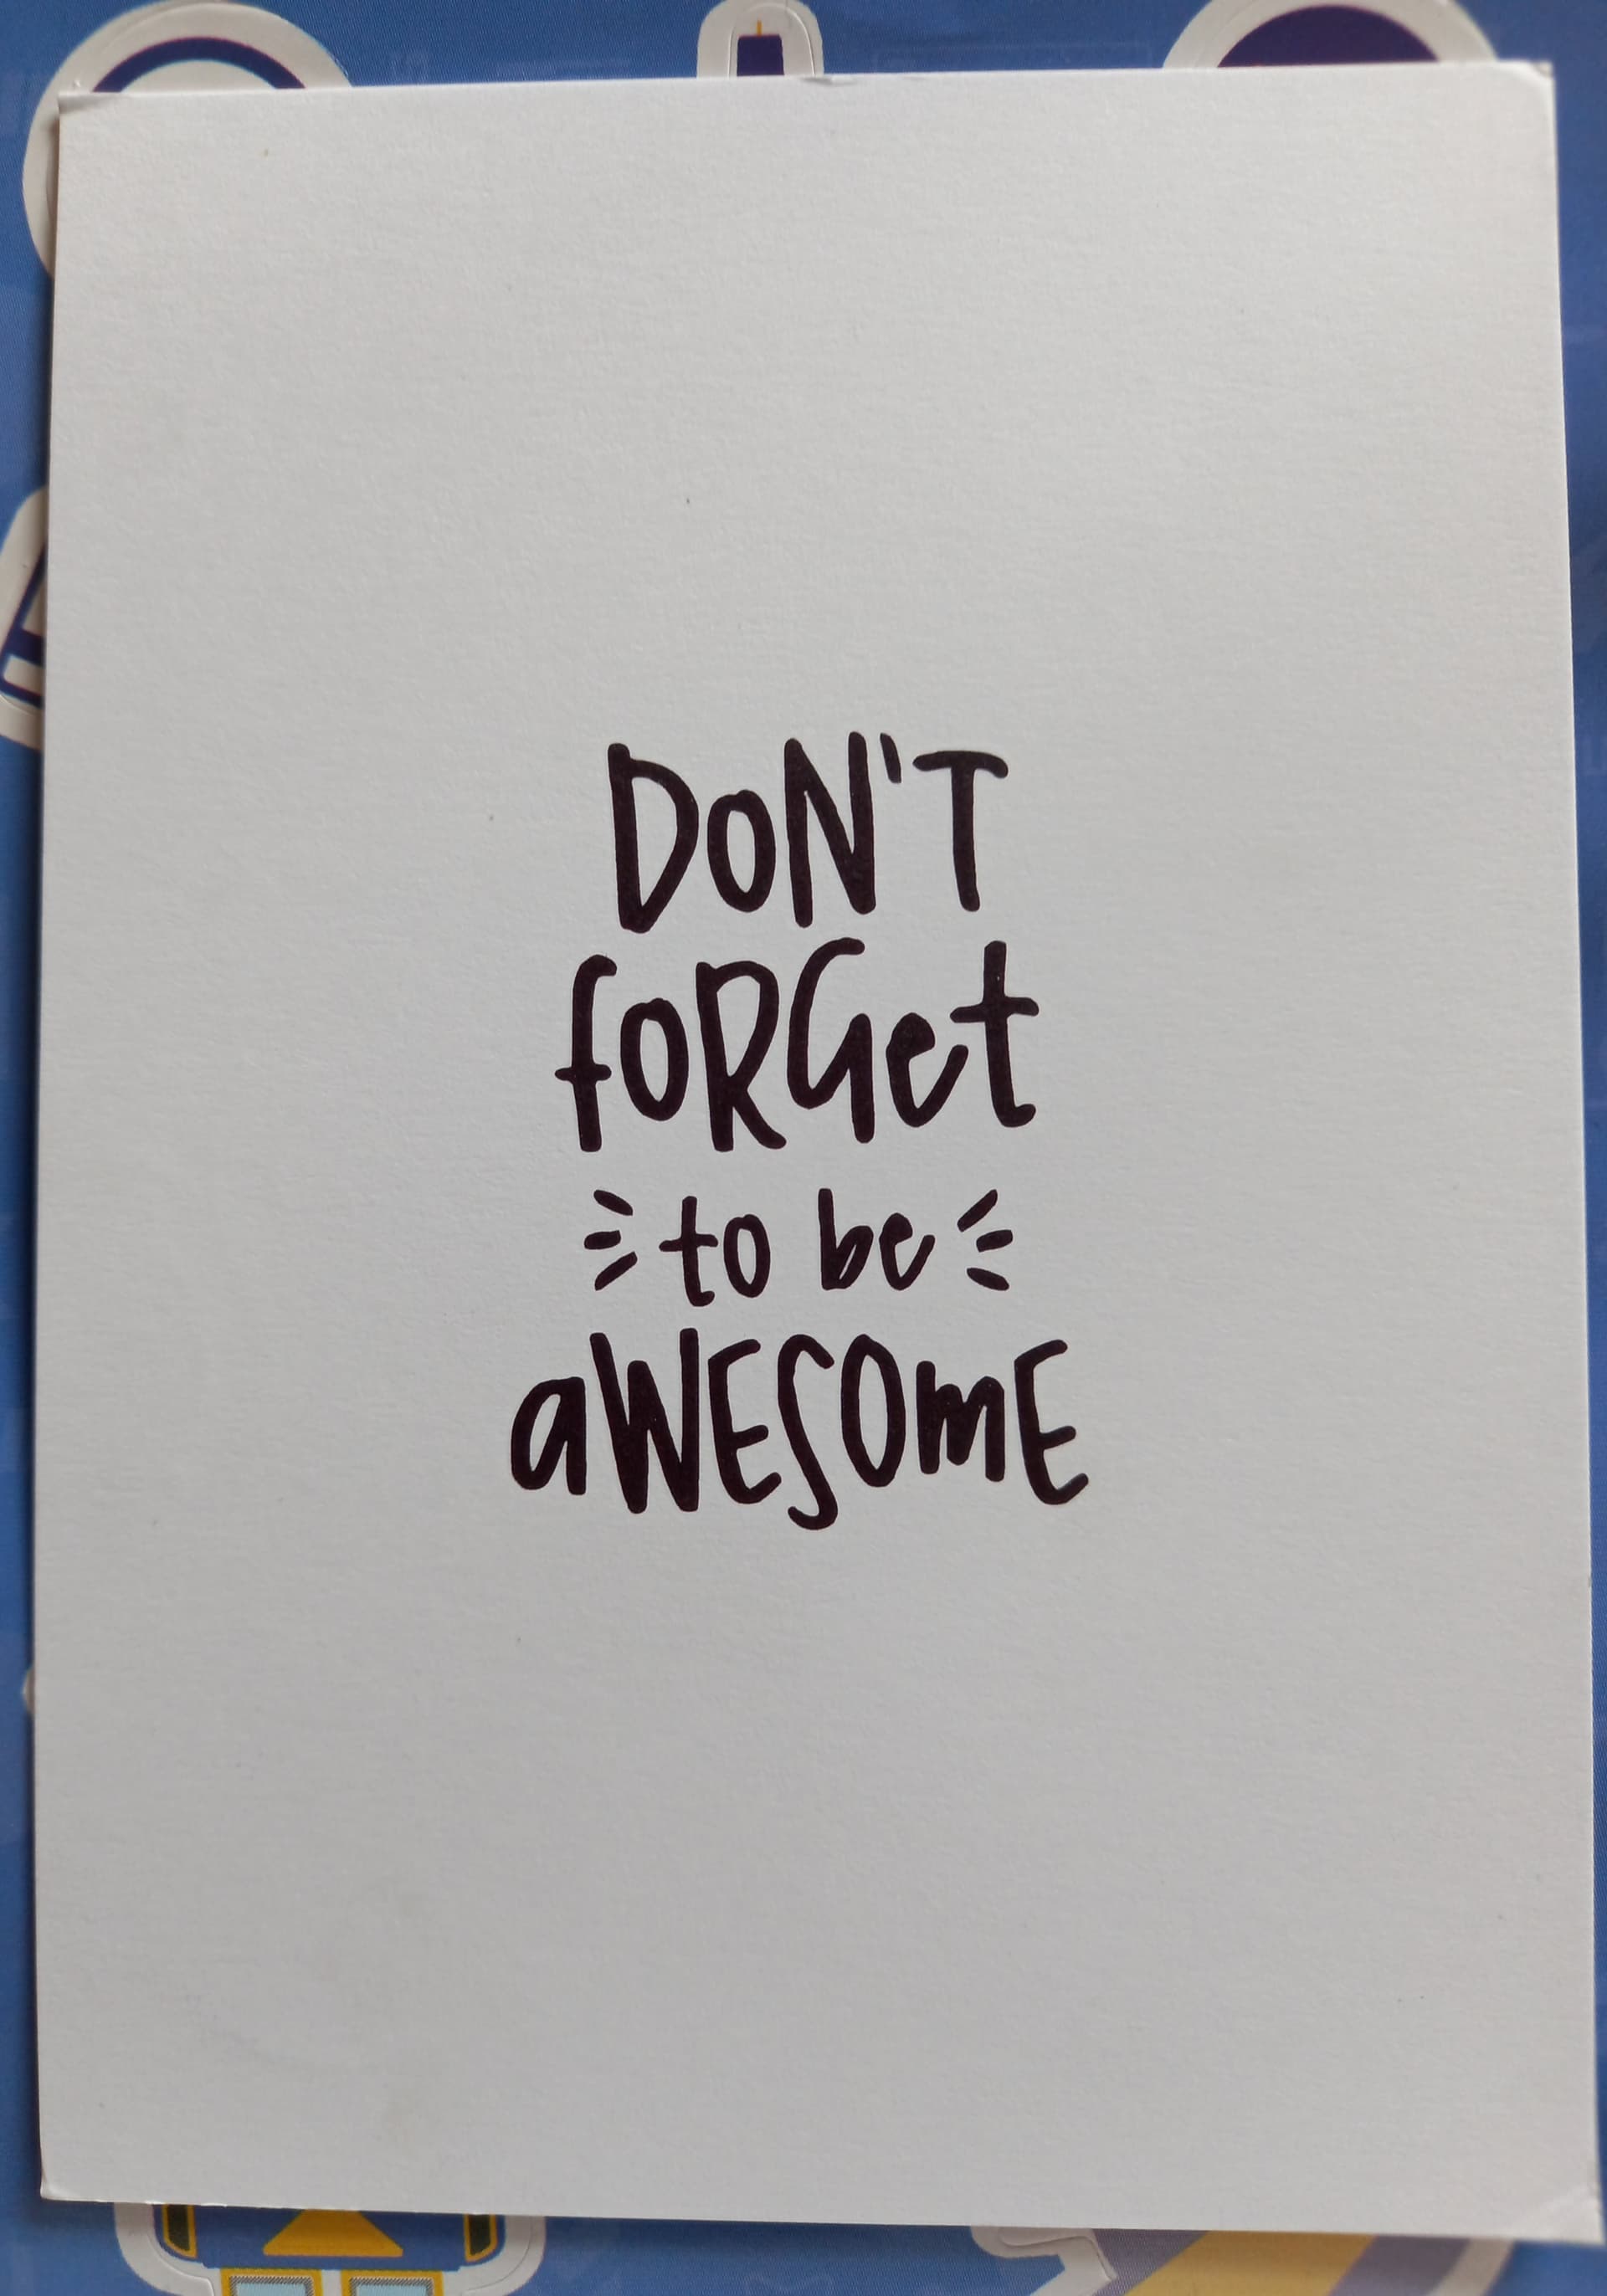 DON'T
foRGet
to be
aWESOmE